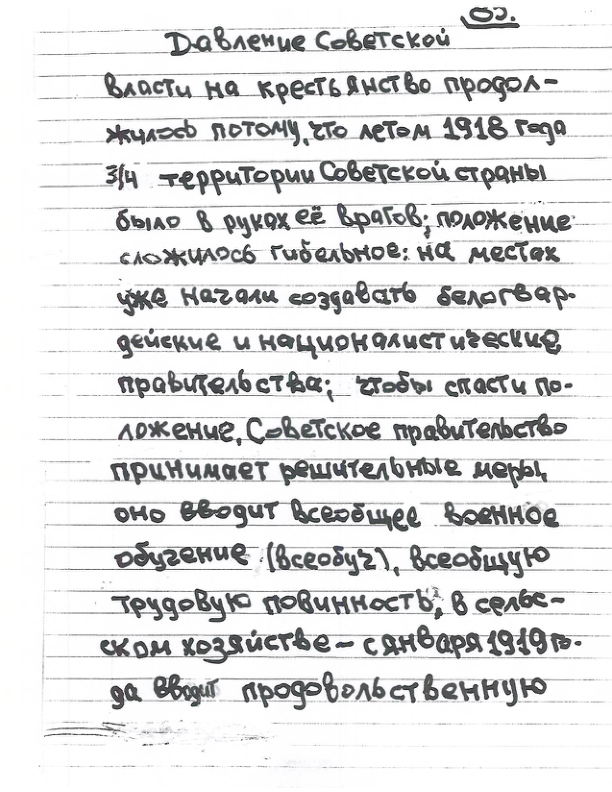 Давление Советской
власти на крестьянство продол-
жилось потому, что летом 1918 года
3/4 территории Советской страны
было в руках её врагов; положение
сложилось гибельное: на местах
уже начали создавать белогвар-
дейские и националистические
правительства; чтобы спасти по-
ложение, Советское правительство
принимает решительные меры,
оно вводит всеобщее военное
обучение (всеобуч), всеобщую
трудовую повинность, в сельс-
ском хозяйстве – с января 1919 го-
да вводит продовольственную